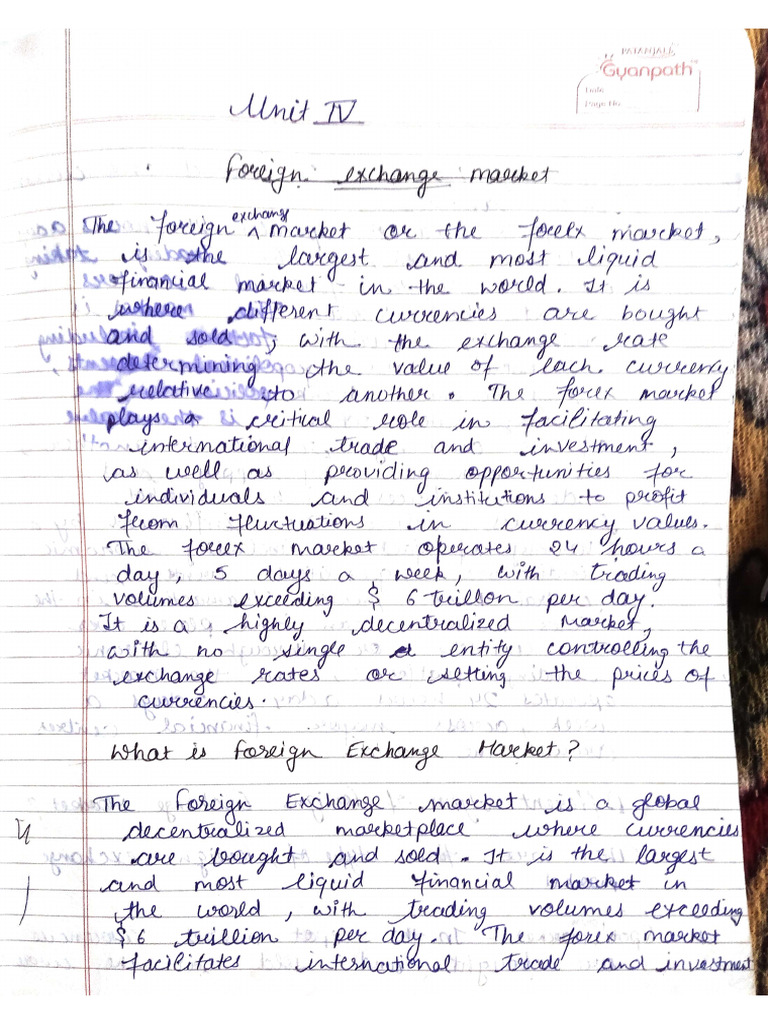 PATANJALI
Gyanpath
Date
Page No.
Unit IV
Foreign exchange market
The foreign exchange market or the forex market,
is the largest and most liquid
financial market in the world. It is
where different currencies are bought
and sold, with the exchange rate
determining the value of each currency
relative to another. The forex market
plays a critical role in facilitating
international trade and investment,
as well as providing opportunities for
individuals and institutions to profit
from fluctuations in currency values.
The forex market operates 24 hours a
day, 5 days a week, with trading
volumes exceeding $ 6 trillon per day.
It is a highly decentralized market,
with no single entity controlling the
exchange rates or setting the prices of
currencies.
What is Foreign Exchange Market?
The Foreign Exchange market is a global
decentralized marketplace where currencies
are bought and sold. It is the largest
and most liquid financial market in
the world, with trading volumes exceeding
$ 6 trillion per day. The forex market
facilitates international trade and investment